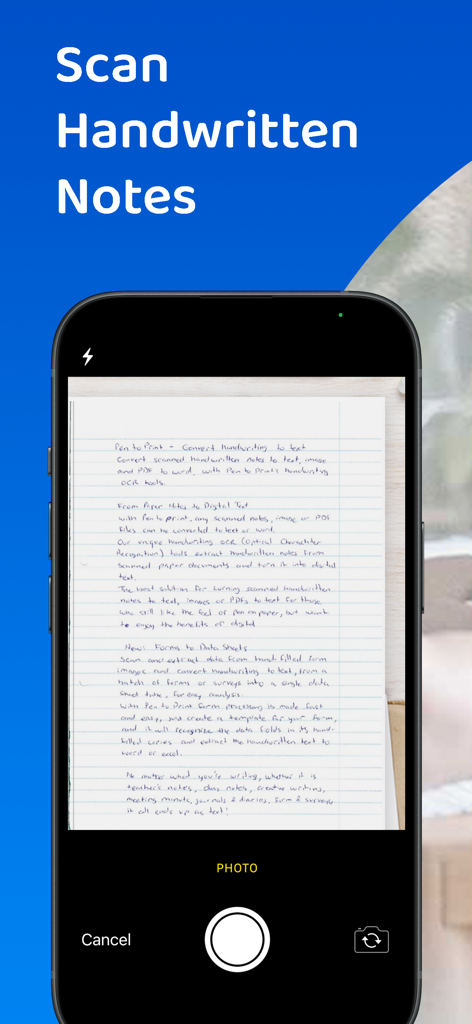 Scan
Handwritten
Notes
Pen to Print - Convert handwriting to text
Convert scanned handwritten notes to text, image
and PDF to word, with Pen to Print's handwriting
OCR tools.
From Paper Notes to Digital Text
with Pen to print, any scanned notes, image or PDF
files can be converted to text or word.
Our unique handwriting OCR (Optical Character
Recognition) tools extract handwritten notes from
scanned paper documents and turn it into digital
text.
The best solution for turning scanned handwritten
notes to text, images or PDFs to text for those
who still like the feel of pen on paper, but want
to enjoy the benefits of digital
New: Forms to Data Sheets
Scan and extract data from hand filled form
images and convert handwriting to text, from a
batch of forms or surveys into a single data
sheet table, for easy analysis.
With Pen to Print form processing is made fast
and easy, just create a template for your form,
and it will recognize the data fields in its hand-
filled copies and extract the handwritten text to
word or excel.
No matter what you're writing, whether it is
teacher's notes, class notes, creative writing,
meeting minuts, journals & diaries, form & surveys
it all ends up as text!
PHOTO
Cancel